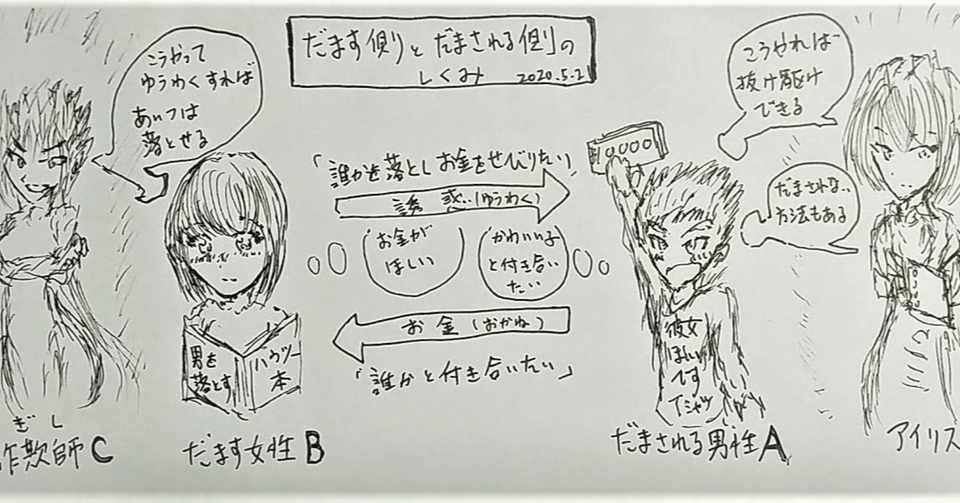 だます側とだまされる側の
しくみ 2020.5.21
こうやって
ゆうわくすれば
あいつは
落とせる
こうやれば
抜け駆け
できる
だまされない
方法もある
「誰かを落としお金をせびりたい」
誘惑(ゆうわく)
お金が
ほしい
かわいい子
と付き合い
たい
お金(おかね)
「誰かと付き合いたい」
10000
男を
落とす
ハウツー
本
彼女
ほしい
です
Tシャツ
ぎし
詐欺師C
だます女性B
だまされる男性A
アイリス